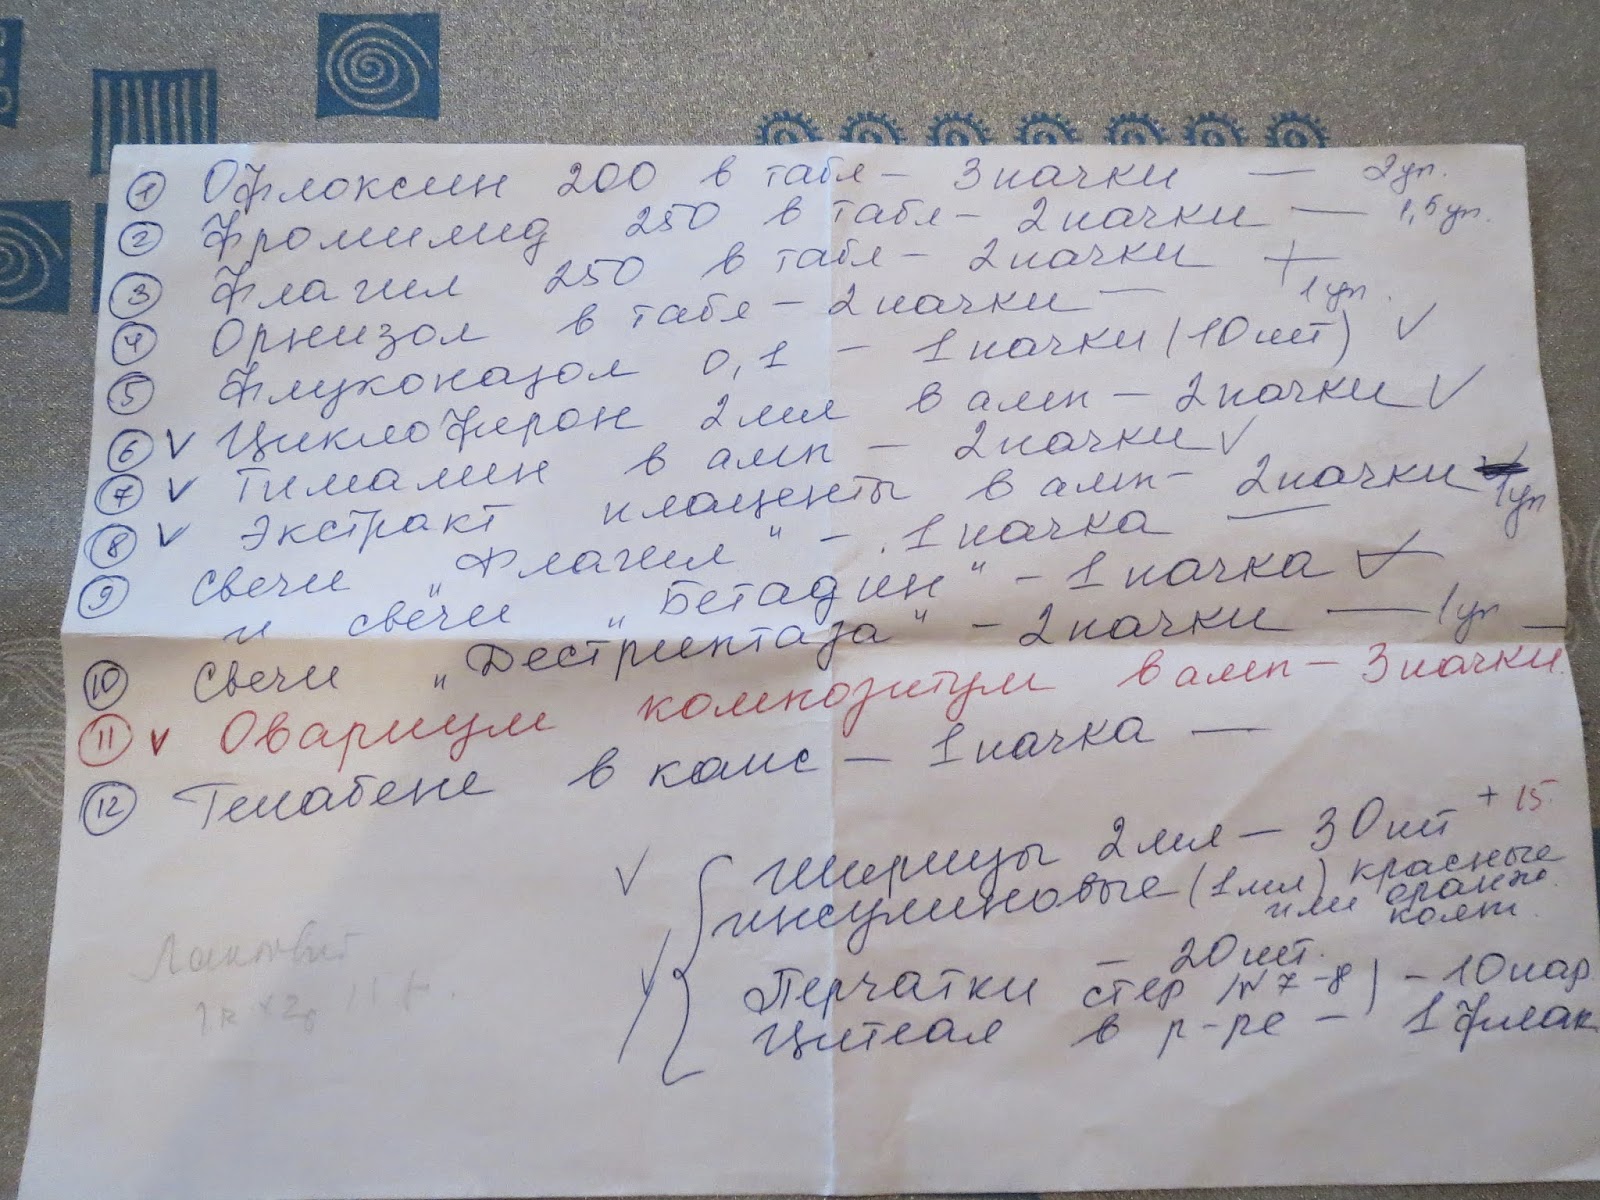 1 Офлоксин 200 в табл - 3 пачки — 2 уп.
2 Фромилид 250 в табл - 2 пачки — 1,5 уп.
3 Флагил 250 в табл - 2 пачки +
4 Орнизол в табл - 2 пачки — 1 уп.
5 Флуконазол 0,1 - 1 пачки (10 шт) ✓
6 ✓ Циклоферон 2 мл в амп - 2 пачки ✓
7 ✓ Тималин в амп - 2 пачки ✓
8 ✓ Экстракт плаценты в амп - 2 пачки 1 уп
9 Свечи „Флагил" - 1 пачка —
и свечи „Бетадин" - 1 пачка ✓
10 Свечи „Дестриптаза" - 2 пачки — 1 уп —
11 ✓ Овариум композитум в амп - 3 пачки.
12 Гепабене в капс - 1 пачка —
✓ Шприцы 2 мл - 30 шт + 15
инсулиновые (1 мл) красные
или оранж.
колп.
- 20 шт.
Перчатки стер (№ 7-8) - 10 пар
Цитеал в р-ре - 1 флак
Лактовит